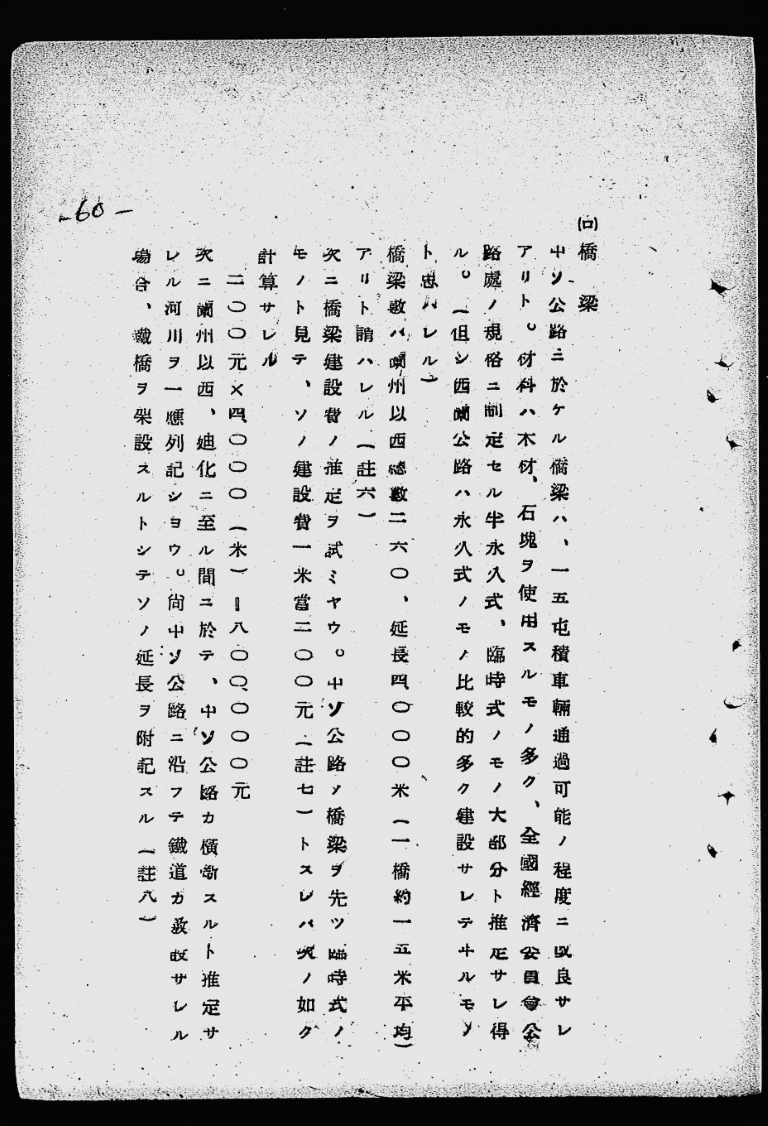 (ロ)橋梁
中ソ公路ニ於ケル橋梁ハ、一五屯積車輛通過可能ノ程度ニ改良サレ
アリト。材料ハ木材、石塊ヲ使用スルモノ多ク、全國經濟委員會公
路處ノ規格ニ制定セル半永久式、臨時式ノモノ大部分ト推定サレ得
ル。(但シ西蘭公路ハ永久式ノモノ比較的多ク建設サレテヰルモノ
ト思ハレル)
橋梁數ハ蘭州以西總數二六〇、延長四、〇〇〇米(一橋約一五米平均)
アリト謂ハレル(註六)
次ニ橋梁建設費ノ推定ヲ試ミヤウ。中ソ公路ノ橋梁ヲ先ツ臨時式ノ
モノト見テ、ソノ建設費一米當二〇〇元(註七)トスレバ次ノ如ク
計算サレル
二〇〇元×四、〇〇〇(米)=八〇〇、〇〇〇元
次ニ蘭州以西、迪化ニ至ル間ニ於テ、中ソ公路カ橫斷スルト推定サ
レル河川ヲ一應列記シヨウ。尚中ソ公路ニ沿フテ鐵道カ敷設サレル
場合、鐵橋ヲ架設スルトシテソノ延長ヲ附記スル(註八)
-60-